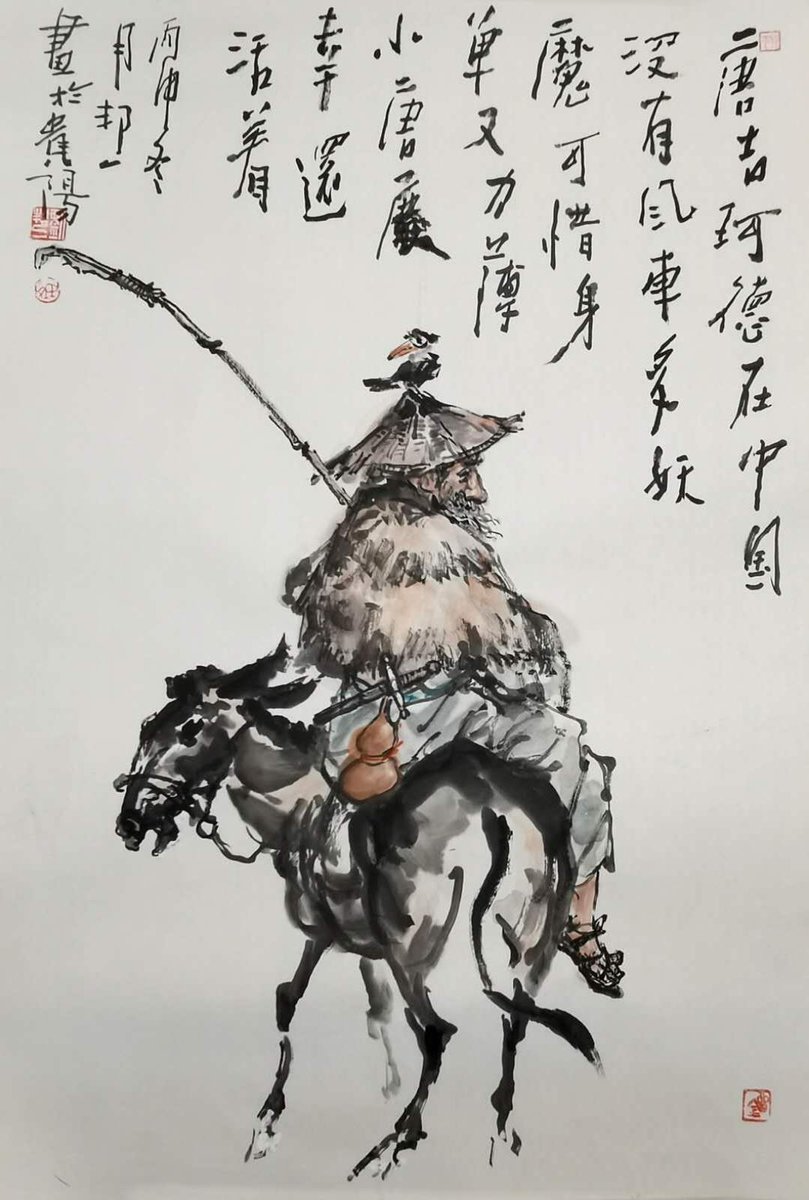 唐吉珂德在中國
没有风車多妖
魔可惜身
单又力薄
小唐
還
活着
丙申冬
月邦一
畫於貴陽